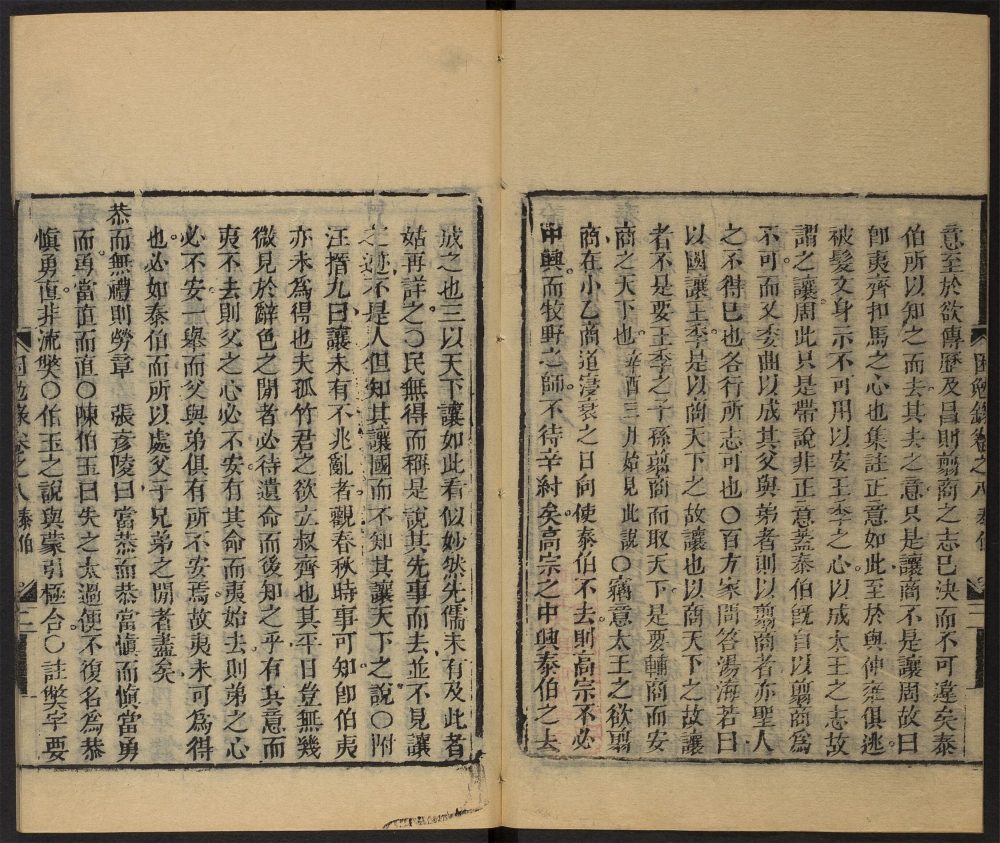 意至於欲傳歷及昌則翦商之志已決而不可違矣泰
伯所以知之而去其去之意只是讓商不是讓周故曰
卽夷齊扣馬之心也集註正意如此至於與仲雍俱逃
被髪文身示不可用以安王季之心以成太王之志故
謂之讓周此只是帶說非正意蓋泰伯旣自以翦商爲
不可而又委曲以成其父與弟者則以翦商者亦聖人
之不得已也各行所志可也〇百方家問答湯海若曰
以國讓王季是以商天下之故讓也以商天下之故讓
者不是要王季之子孫翦商而取天下是要輔商而安
商之天下也辛酉三月始見此說〇竊意太王之欲翦
商在小乙商道寖衰之日向使泰伯不去則高宗不必
中興而牧野之師不待辛紂矣高宗之中興泰伯之去
困勉錄卷之八 泰伯 二
成之也三以天下讓如此看似妙然先儒未有及此者
姑再詳之〇民無得而稱是說其先事而去並不見讓
之迹不是人但知其讓國而不知其讓天下之說〇附
汪搢九曰讓未有不兆亂者觀春秋時事可知卽伯夷
亦未爲得也夫孤竹君之欲立叔齊也其平日豈無幾
微見於辭色之閒者必待遺命而後知之乎有其意而
夷不去則父之心必不安有其命而夷始去則弟之心
必不安一舉而父與弟俱有所不安焉故夷未可爲得
也必如泰伯而所以處父子兄弟之閒者盡矣
恭而無禮則勞章 張彥陵曰當恭而恭當愼而愼當勇
而勇當直而直〇陳伯玉曰失之太過便不復名爲恭
愼勇直非流獘〇伯玉之說與蒙引極合〇註獘字要
困勉錄卷之八 泰伯 二